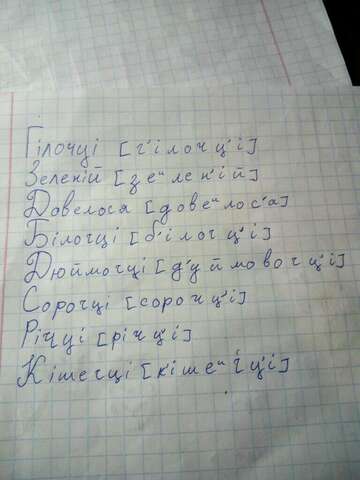 Гілочці [г'ілочц'і]
Зеленій [зеиленій]
Довелося [довеилос'а]
Білочці [б'ілочц'і]
Дюймочці [д'уймовочц'і]
Сорочці [сорочц'і]
Річці [річц'і]
Кішечці [кішеичц'і]